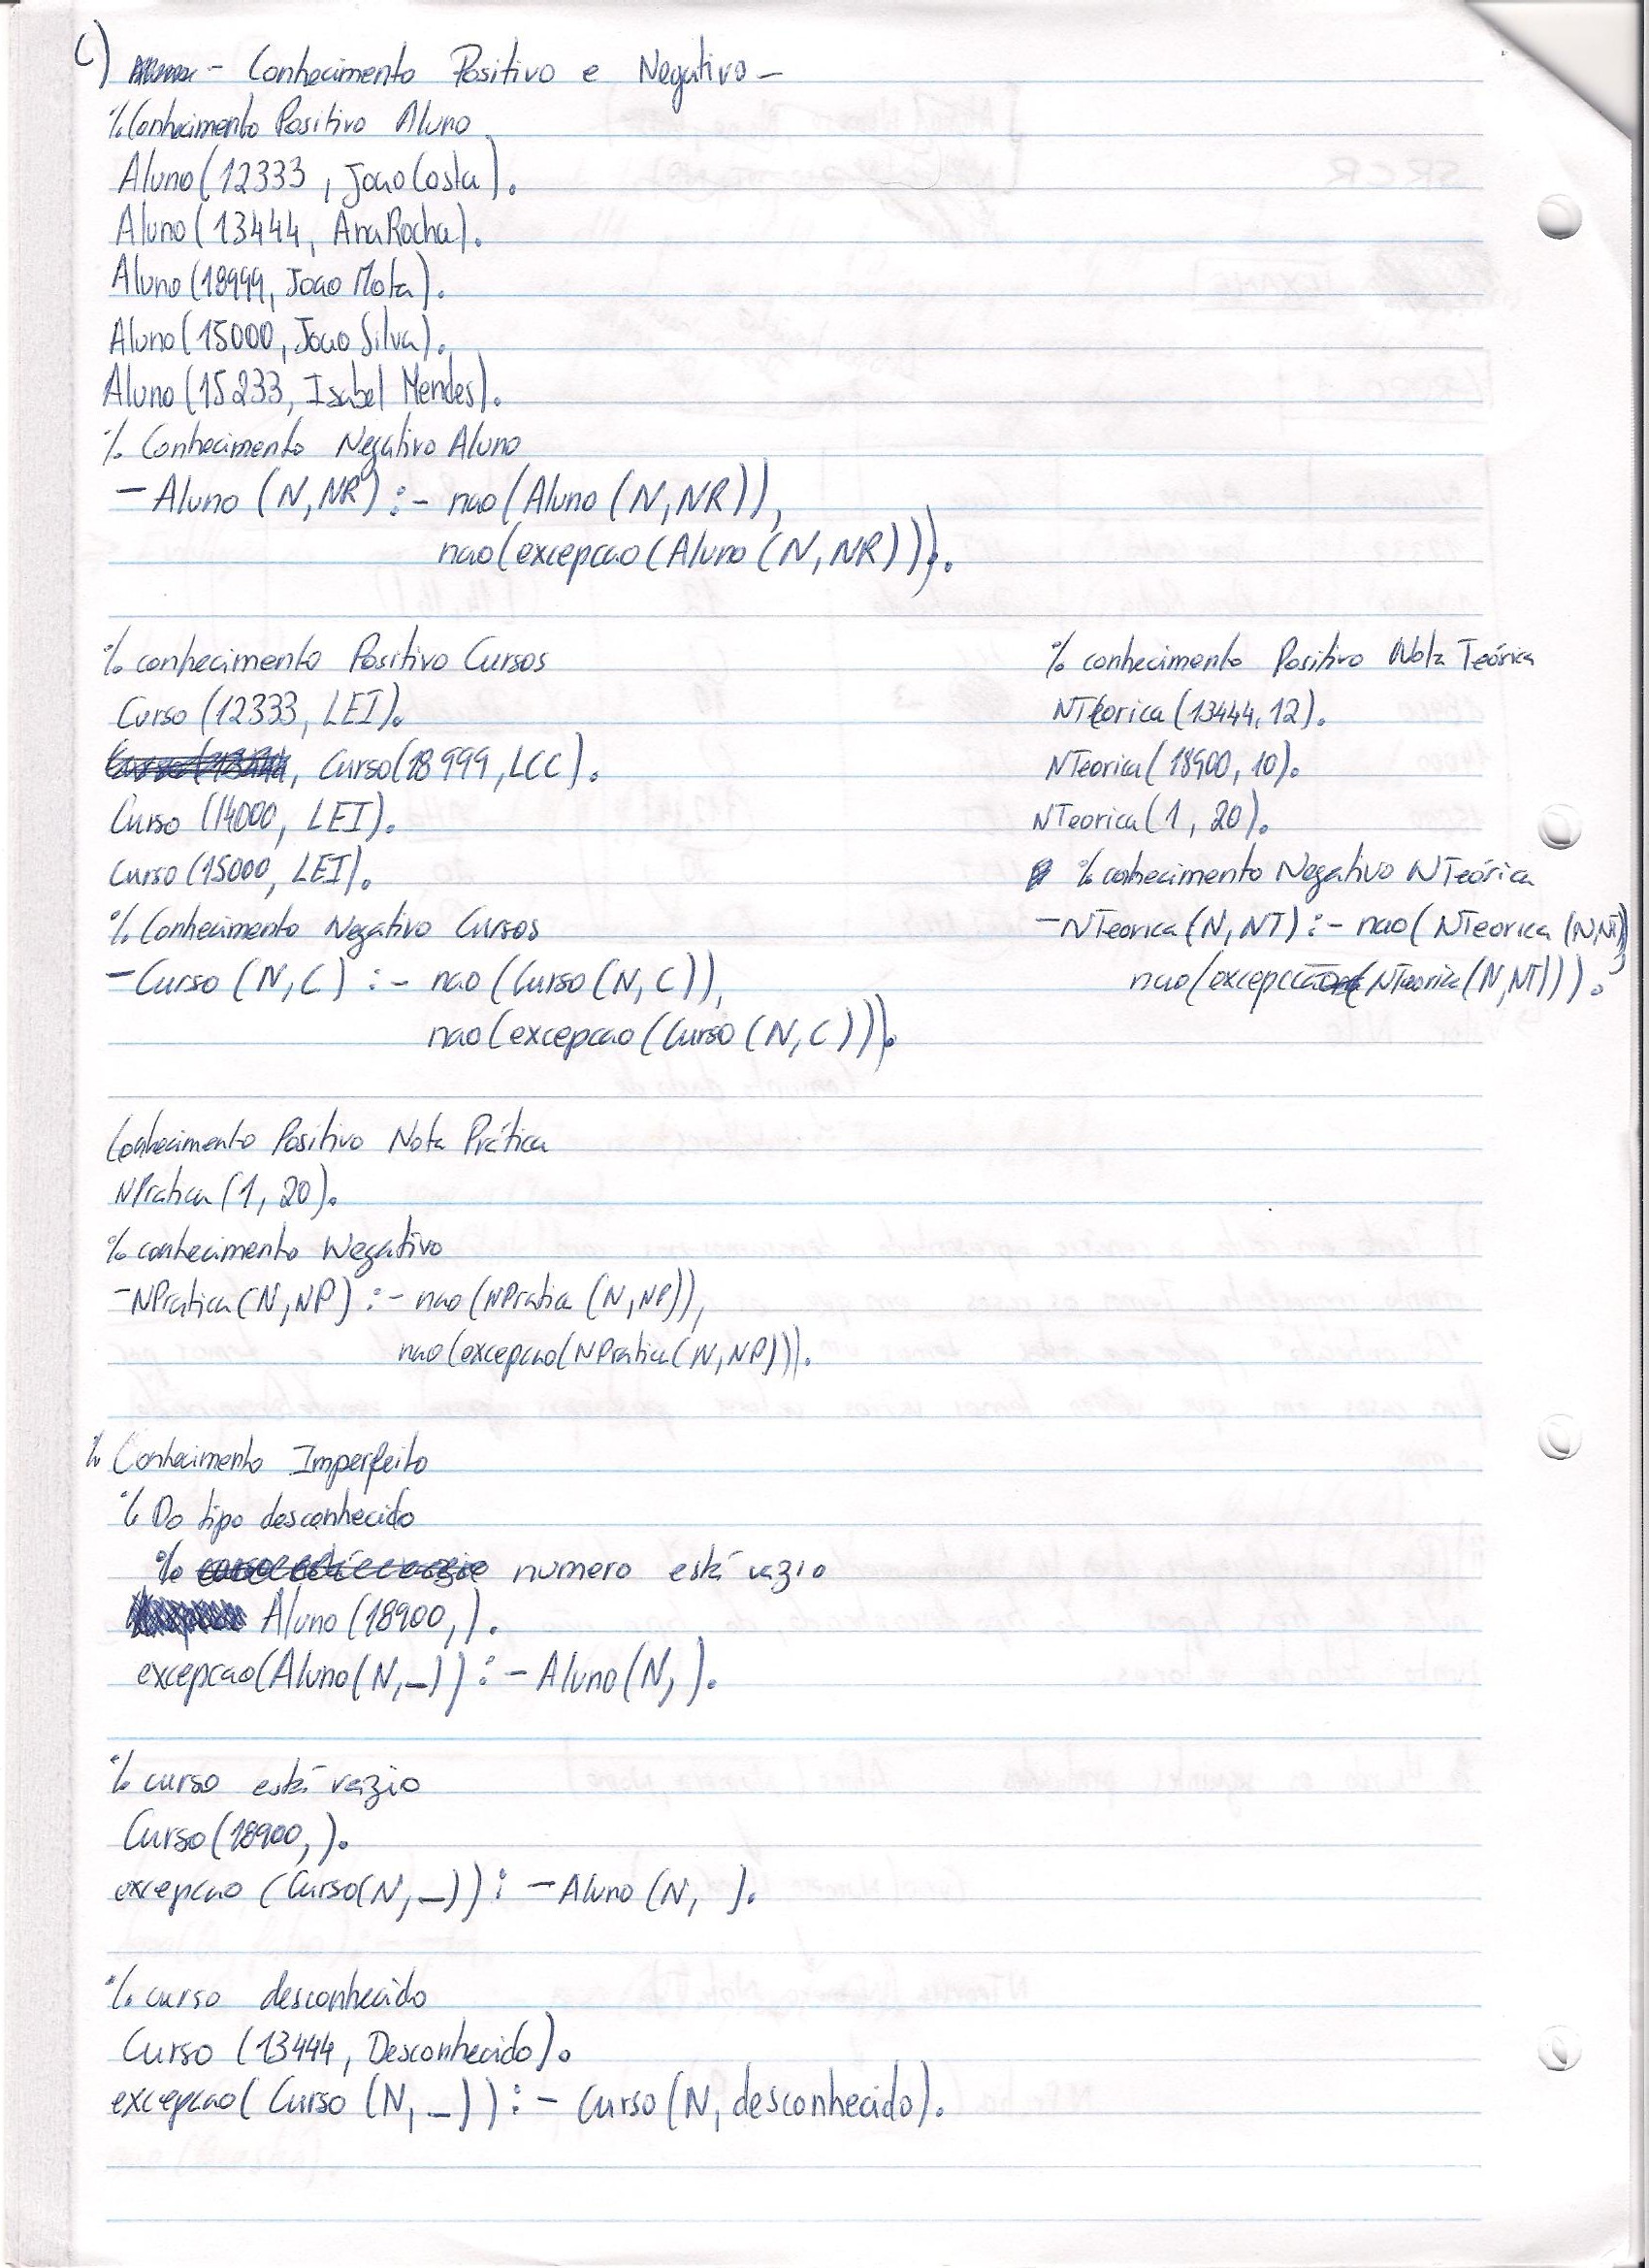 c) - Conhecimento Positivo e Negativo -
% Conhecimento Positivo Aluno
Aluno(12333, JoaoCosta).
Aluno(13444, AnaRocha).
Aluno(18999, Joao Mota).
Aluno(15000, Joao Silva).
Aluno(15233, Isabel Mendes).
% Conhecimento Negativo Aluno
-Aluno (N, NR) :- nao (Aluno (N, NR)),
nao(excepcao(Aluno (N, NR))).
% conhecimento Positivo Cursos
Curso (12333, LEI).
, Curso(18999, LCC).
Curso (14000, LEI).
Curso (15000, LEI).
% Conhecimento Negativo Cursos
-Curso (N, C) :- nao (Curso (N, C)),
nao (excepcao (Curso (N, C))).
% conhecimento Positivo Nota Teórica
NTeorica (13444, 12).
NTeorica (18900, 10).
NTeorica (1, 20).
% cohecimento Negativo NTeórica
-NTeorica (N, NT) :- nao (NTeorica (N,NT)),
nao (excepcao(NTeorica (N, NT))).
Conhecimento Positivo Nota Prática
NPratica (1, 20).
% conhecimento Negativo
-NPratica (N, NP) :- nao (NPratica (N, NP)),
nao (excepcao(NPratica (N, NP))).
% Conhecimento Imperfeito
% Do tipo desconhecido
% numero está vazio
Aluno (18900, ).
excepcao(Aluno(N, _)) :- Aluno (N, ).
% curso está vazio
Curso (18900, ).
excepcao (Curso(N, _)) :- Aluno (N, ).
% curso desconhecido
Curso (13444, Desconhecido).
excepcao( Curso (N, _)) :- Curso (N, desconhecido).